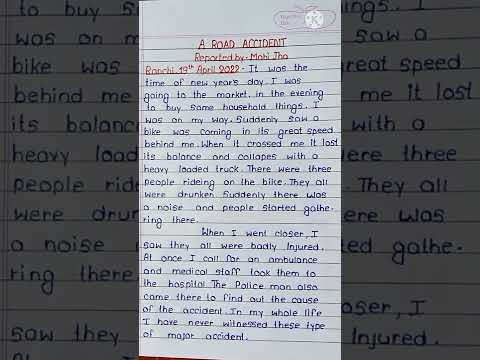 A ROAD ACCIDENT
Reported by:- Mohi Jha
Ranchi, 19th April 2022- It was the
time of new year's day. I was
going to the market, in the evening
to buy some household things. I
was on my way. Suddenly saw a
bike was coming in its great speed
behind me. When it crossed me it lost
its balance and collapes with a
heavy loaded truck. There were three
people rideing on the bike. They all
were drunken. Suddenly there was
a noise and people started gathe-
ring there.
When I went closer, I
saw they all were badly Injured.
At once I call for an ambulance
and medical staff took them to
the hospital The Police man also
came there to find out the cause
of the accident. In my whole life
I have never witnessed these type
of major accident.